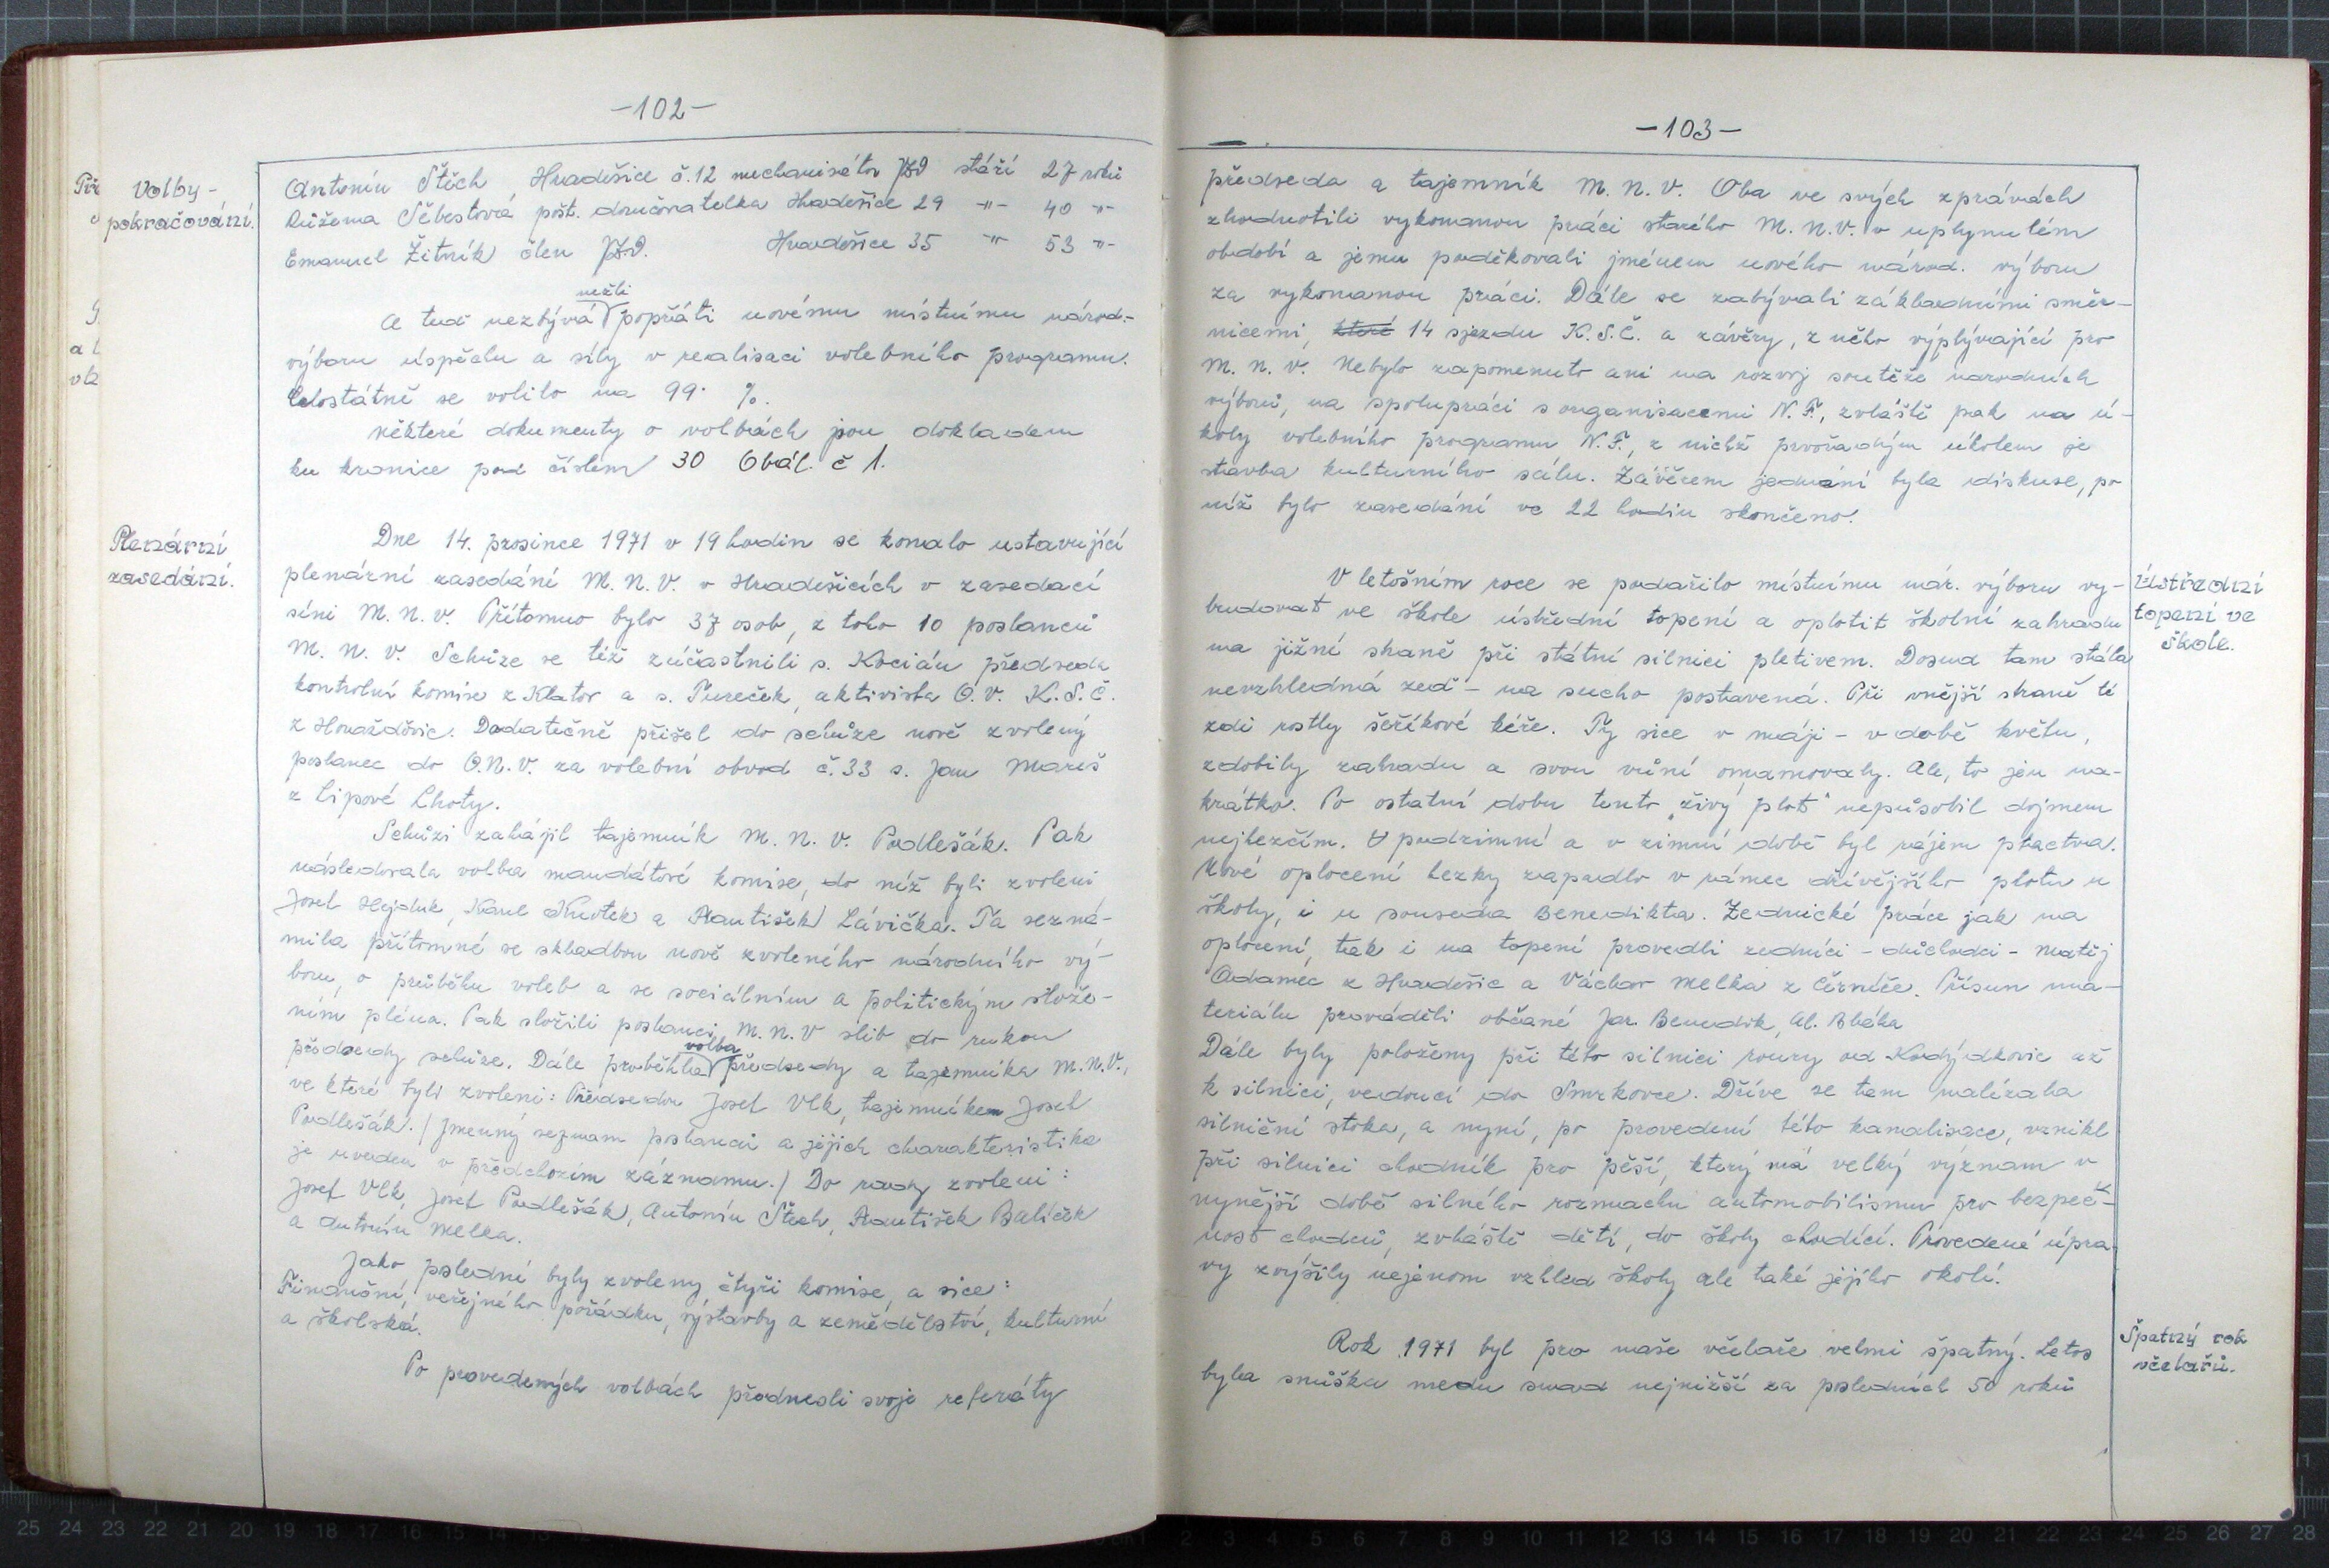 -102-
Volby -
pokračování.
Antonín Štěch, Hradešice č.12 mechanisátor JZD stáří 27 roků
Růžema Šebestová pošt. doručovatelka Hradešice 29 -"- 40 -"-
Emanuel Žitník člen JZD. Hradešice 35 -"- 53 -"-
nežli
A tud nezbývá popřáti novému místnímu národ.
výboru úspěchu a síly v realisaci volebního programu.
Celostátně se volilo na 99· %.
Některé dokumenty o volbách jsou dokladem
ku kronice pod číslem 30 Obál. č 1.
Plenární
zasedání.
Dne 14. prosince 1971 v 19 hodin se konalo ustavující
plenární zasedání M. N. V. v Hradešicích v zasedací
síni M. N. V. Přítomno bylo 37 osob, z toho 10 poslanců
M. N. V. Schůze se též zúčastnili s. Kocián předseda
kontrolní komise z Klatov a s. Tureček, aktivista O. V. K. S. Č.
z Horažďovic. Dodatečně přišel do schůze nově zvolený
poslanec do O.N.V. za volební obvod č. 33 s. Jan Mareš
z Lipové Lhoty.
Schůzi zahájil tajemník M. N. V. Podlešák. Pak
následovala volba mandátové komise, do níž byli zvoleni
Josef Hejduk, Karel Kvotek a František Lávička. Ta sezná-
mila přítomné se skladbou nově zvoleného národního vý-
boru, o průběhu voleb a se sociálním a politickým slože-
ním pléna. Pak složili poslanci M. N. V slib do rukou
volba
předsedy schůze. Dále proběhla předsedy a tajemníka M.N.V.,
ve které byli zvoleni: Předsedou Josef Vlk, tajemníkem Josef
Podlešák. / Jmenný seznam poslanců a jejich charakteristika
je uveden v předchozím záznamu. / Do rady zvoleni:
Josef Vlk, Josef Podlešák, Antonín Štech, František Balíček
a Antonín Melka.
Jako poslední byly zvoleny čtyři komise, a sice:
Finanční, veřejného pořádku, výstavby a zemědělství, kulturní
a školská.
Po provedených volbách přednesli svoje referáty
-103-
předseda a tajemník M. N. V. Oba ve svých zprávách
zhodnotili vykonanou práci starého M. N. V. v uplynulém
období a jemu poděkovali jménem nového národ. výboru
za vykonanou práci. Dále se zabývali základními směr-
nicemi, které 14 sjezdu K. S. Č. a závěry, z něho výplývající pro
M. N. V. Nebylo zapomenuto ani na rozvoj soutěže narodních
výborů, na spolupráci s organisacemi N. F., zvláště pak na ú-
koly volebního programu N. F., z nichž prvořadým úkolem je
stavba kulturního sálu. Závěrem jednání byla diskuse, po
níž bylo zasedání ve 22 hodin skončeno.
V letošním roce se podařilo místnímu nár. výboru vy-
budovat ve škole ústřední topení a oplotit školní zahradu
na jižní straně při státní silnici pletivem. Dosud tam stála
nevzhledná zeď - na sucho postavená. Při vnější straně té
zdi rostly šeříkové kéře. Ty sice v máji - v době květu,
zdobily zahradu a svou vůní omamovaly. Ale, to jen na-
krátko. Po ostatní dobu tento "živý plot" nepůsobil dojmem
nejhezčím. V podzimní a v zimní době byl rájem ptactva.
Nové oplocení hezky zapadlo v rámec dřívějšího plotu u
školy, i u souseda Benedikta. Zednické práce jak na
oplocení, tak i na topení provedli zedníci - důchodci - Matěj
Adamec z Hradešic a Václav Melka z Černíče. Přísun ma-
teriálu prováděli občané Jar. Benedik, Al. Bláha
Dále byly položeny při této silnici roury od Kodýdkovic až
k silnici, vedoucí do Smrkovce. Dříve se tam nalézala
silniční stoka, a nyní, po provedení této kanalisace, vznikl
při silnici chodník pro pěší, který má velký význam v
nynější době silného rozmachu automobilismu pro bezpeč-
nost chodců, zvláště dětí, do školy chodící. Provedené úpra-
vy zvýšily nejenom vzhled školy ale také jejího okolí.
Ústřední
topení ve
škole.
Rok 1971 byl pro naše včelaře velmi špatný. Letos
byla snůška medu snad nejnižší za posledních 50 roků
Špatný rok
včelařů.